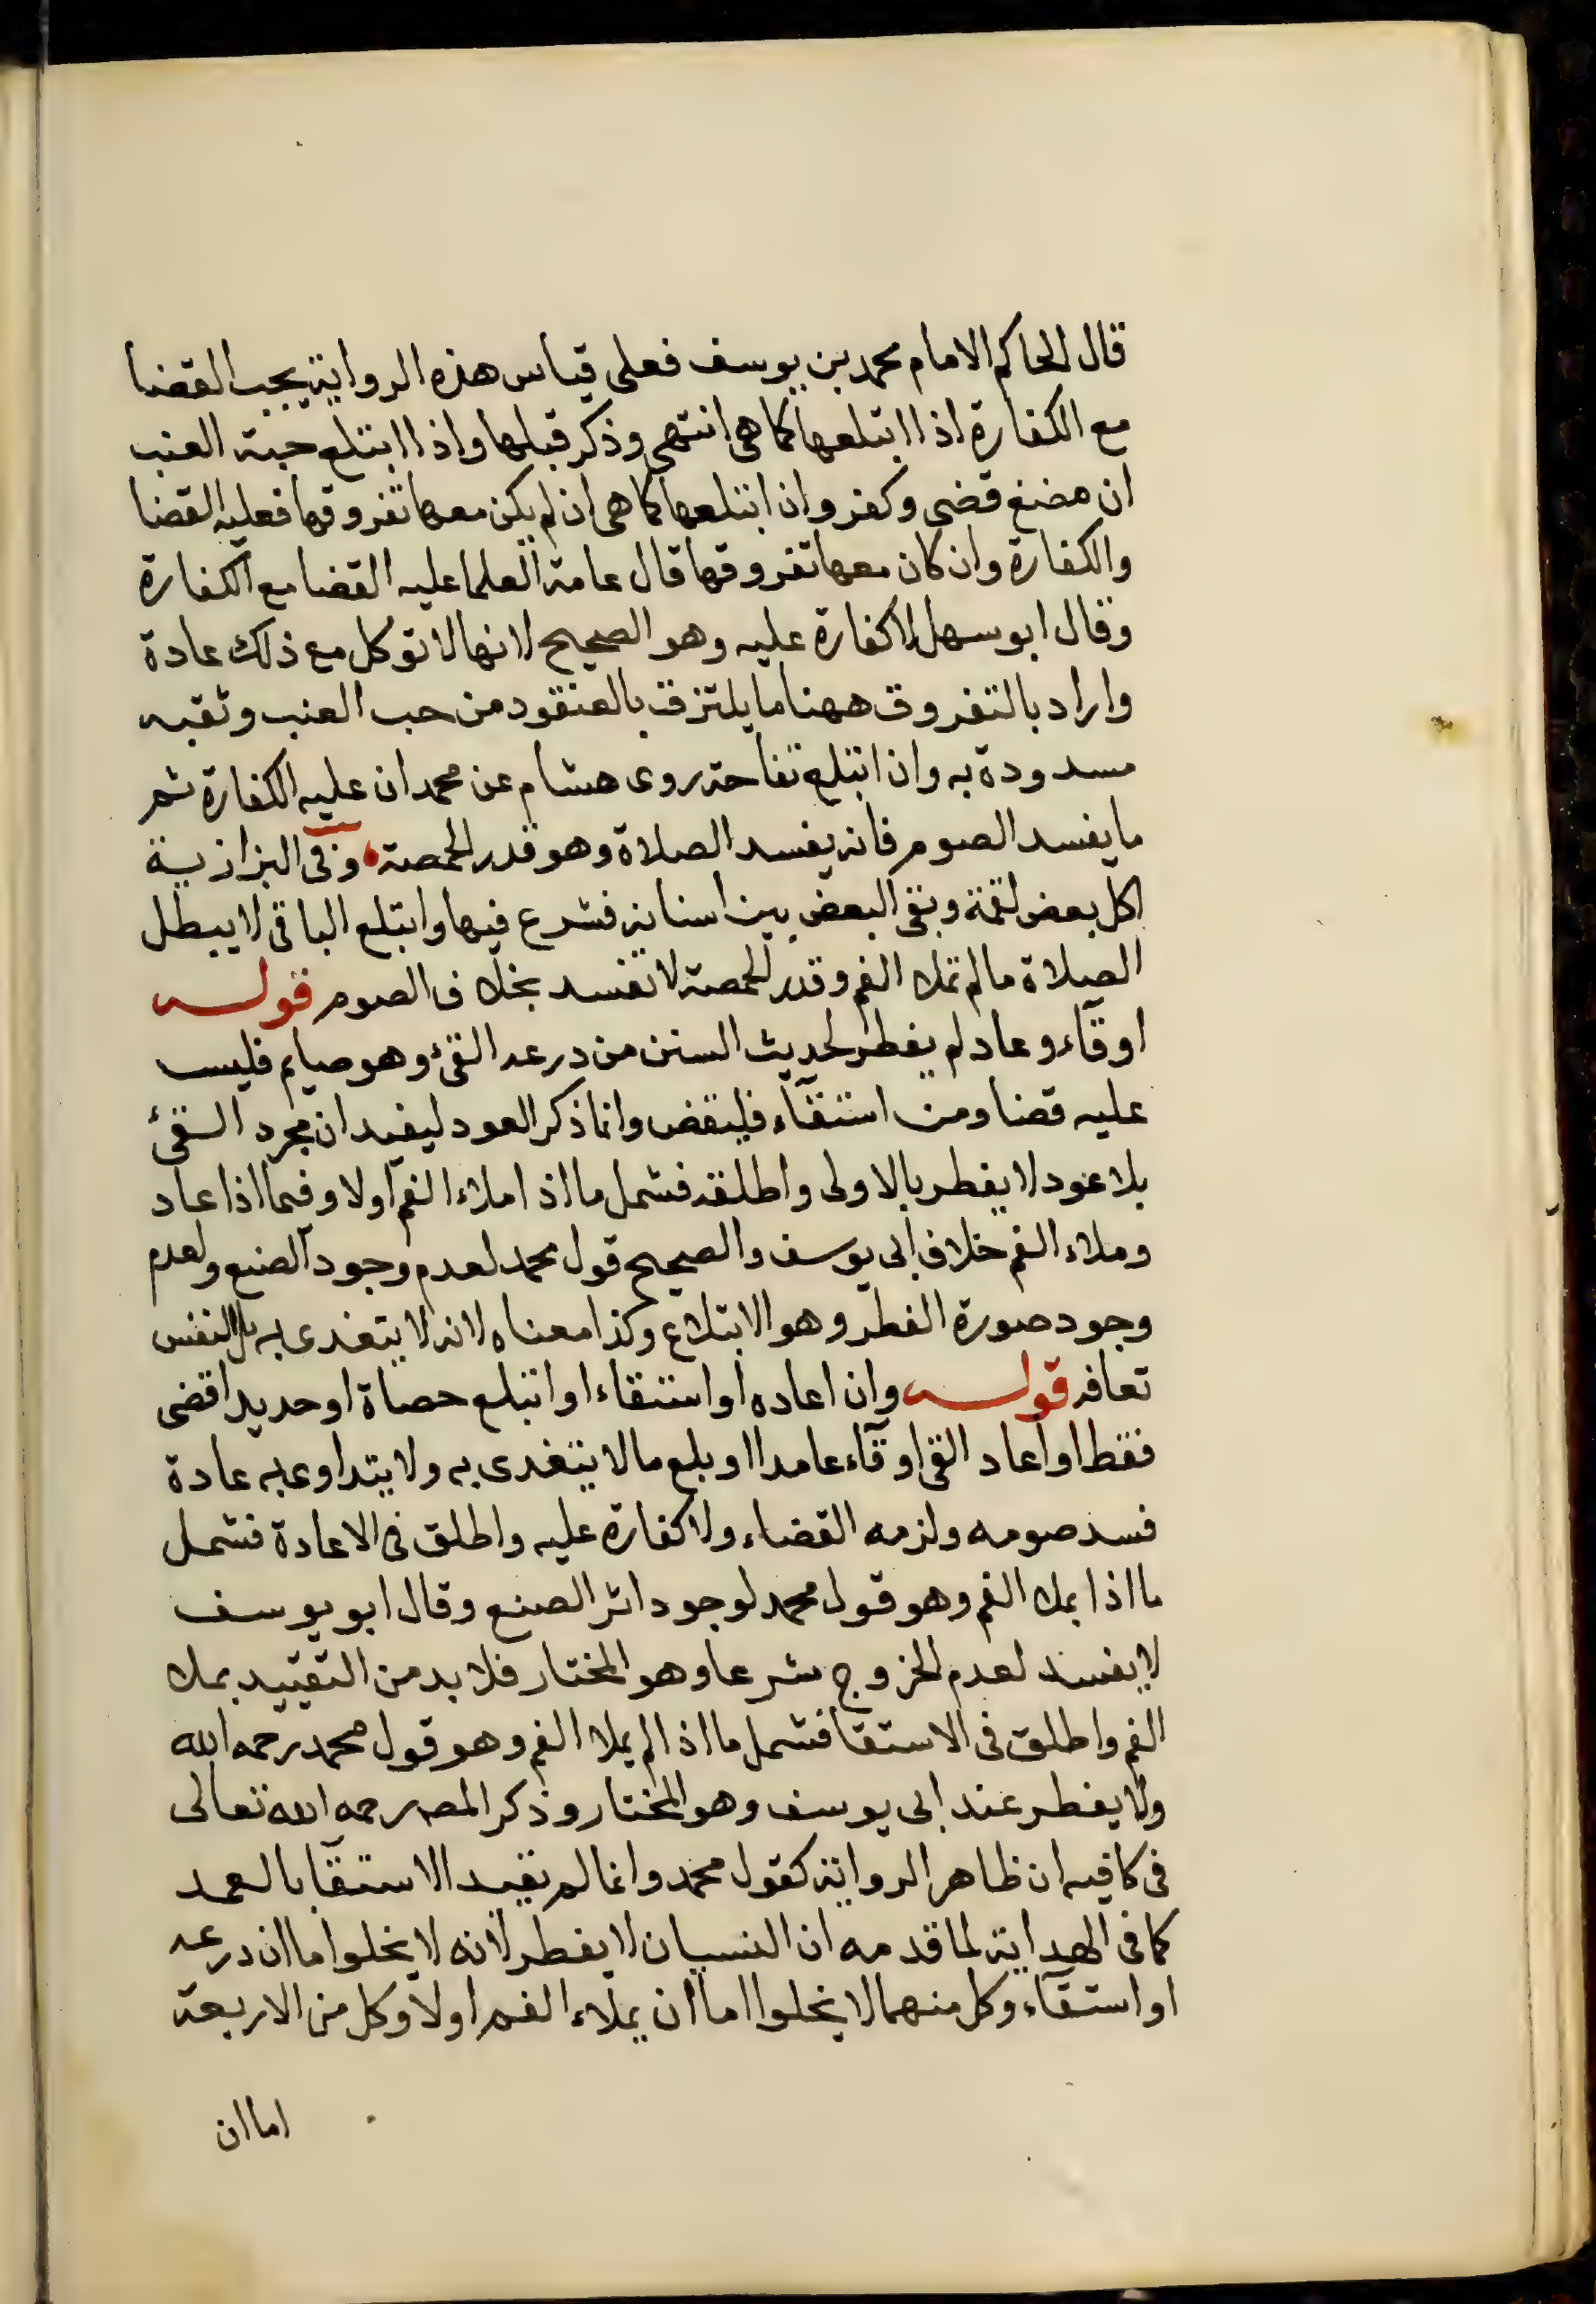 قال الحاكم الامام محمد بن يوسف فعلى قياس هذه الرواية يجب القضا
مع الكفارة اذا ابتلعها كما هى انتهى وذكر قبلها واذا ابتلع حبة العنب
ان مضغ قضى وكفر وان ابتلعها كما هى ان لم يكن معها تفروقها فعليه القضا
والكفارة وان كان معها تفروقها قال عامة العلما عليه القضا مع الكفارة
وقال ابو سهل لا كفارة عليه وهو الصحيح لانها لا توكل مع ذلك عادة
واراد بالتفروق ههنا ما يلتزق بالعنقود من حب العنب وثقبه
مسدودة به وان ابتلع تفاحة روى هشام عن محمد ان عليه الكفارة ثم
ما يفسد الصوم فانه يفسد الصلاة وهو قدر الحمصة وفى البزازية
اكل بعض لقمة وبقى البعض بين اسنانه فشرع فيها وابتلع الباقى لا يبطل
الصلاة ما لم تملا الفم وقدر الحمصة لا تفسد بخلاف الصوم قوله
او قاء وعاد لم يفطر لحديث السنن من درعه القئ وهو صايم فليس
عليه قضا ومن استقاء فليقض وانما ذكر العود ليفيد ان مجرد القئ
بلا عود لا يفطر بالاولى واطلقه فشمل ما اذا املاء الفم اولا وفيما اذا عاد
وملاء الفم خلاف ابى يوسف والصحيح قول محمد لعدم وجود الصنع ولعدم
وجود صورة الفطر وهو الابتلاع وكذا معناه لانه لا يتغدى به بل النفس
تعافه قوله وان اعاده او استقاء او ابتلع حصاة او حديدا قضى
فقط او اعاد القى او قاء عامدا او بلع ما لا يتغدى به ولا يتداوى به عادة
فسد صومه ولزمه القضاء ولا كفارة عليه واطلق فى الاعادة فشمل
ما اذا يملا الفم وهو قول محمد لوجود اثر الصنع وقال ابو يوسف
لا يفسد لعدم الخروج شرعا وهو المختار فلا بد من التقييد بملا
الفم واطلق فى الاستقا فشمل ما اذا لم يملا الفم وهو قول محمد رحمه الله
ولا يفطر عند ابى يوسف وهو المختار وذكر المصه رحمه الله تعالى
فى كافيه ان ظاهر الرواية كقول محمد وانما لم يقيد الاستقا بالعمد
كما فى الهداية لما قدمه ان النسيان لا يفطر لانه لا يخلوا ما ان درعه
او استقاء وكل منهما لا يخلوا اما ان يملاء الفم اولا وكل من الاربعة
اما ان